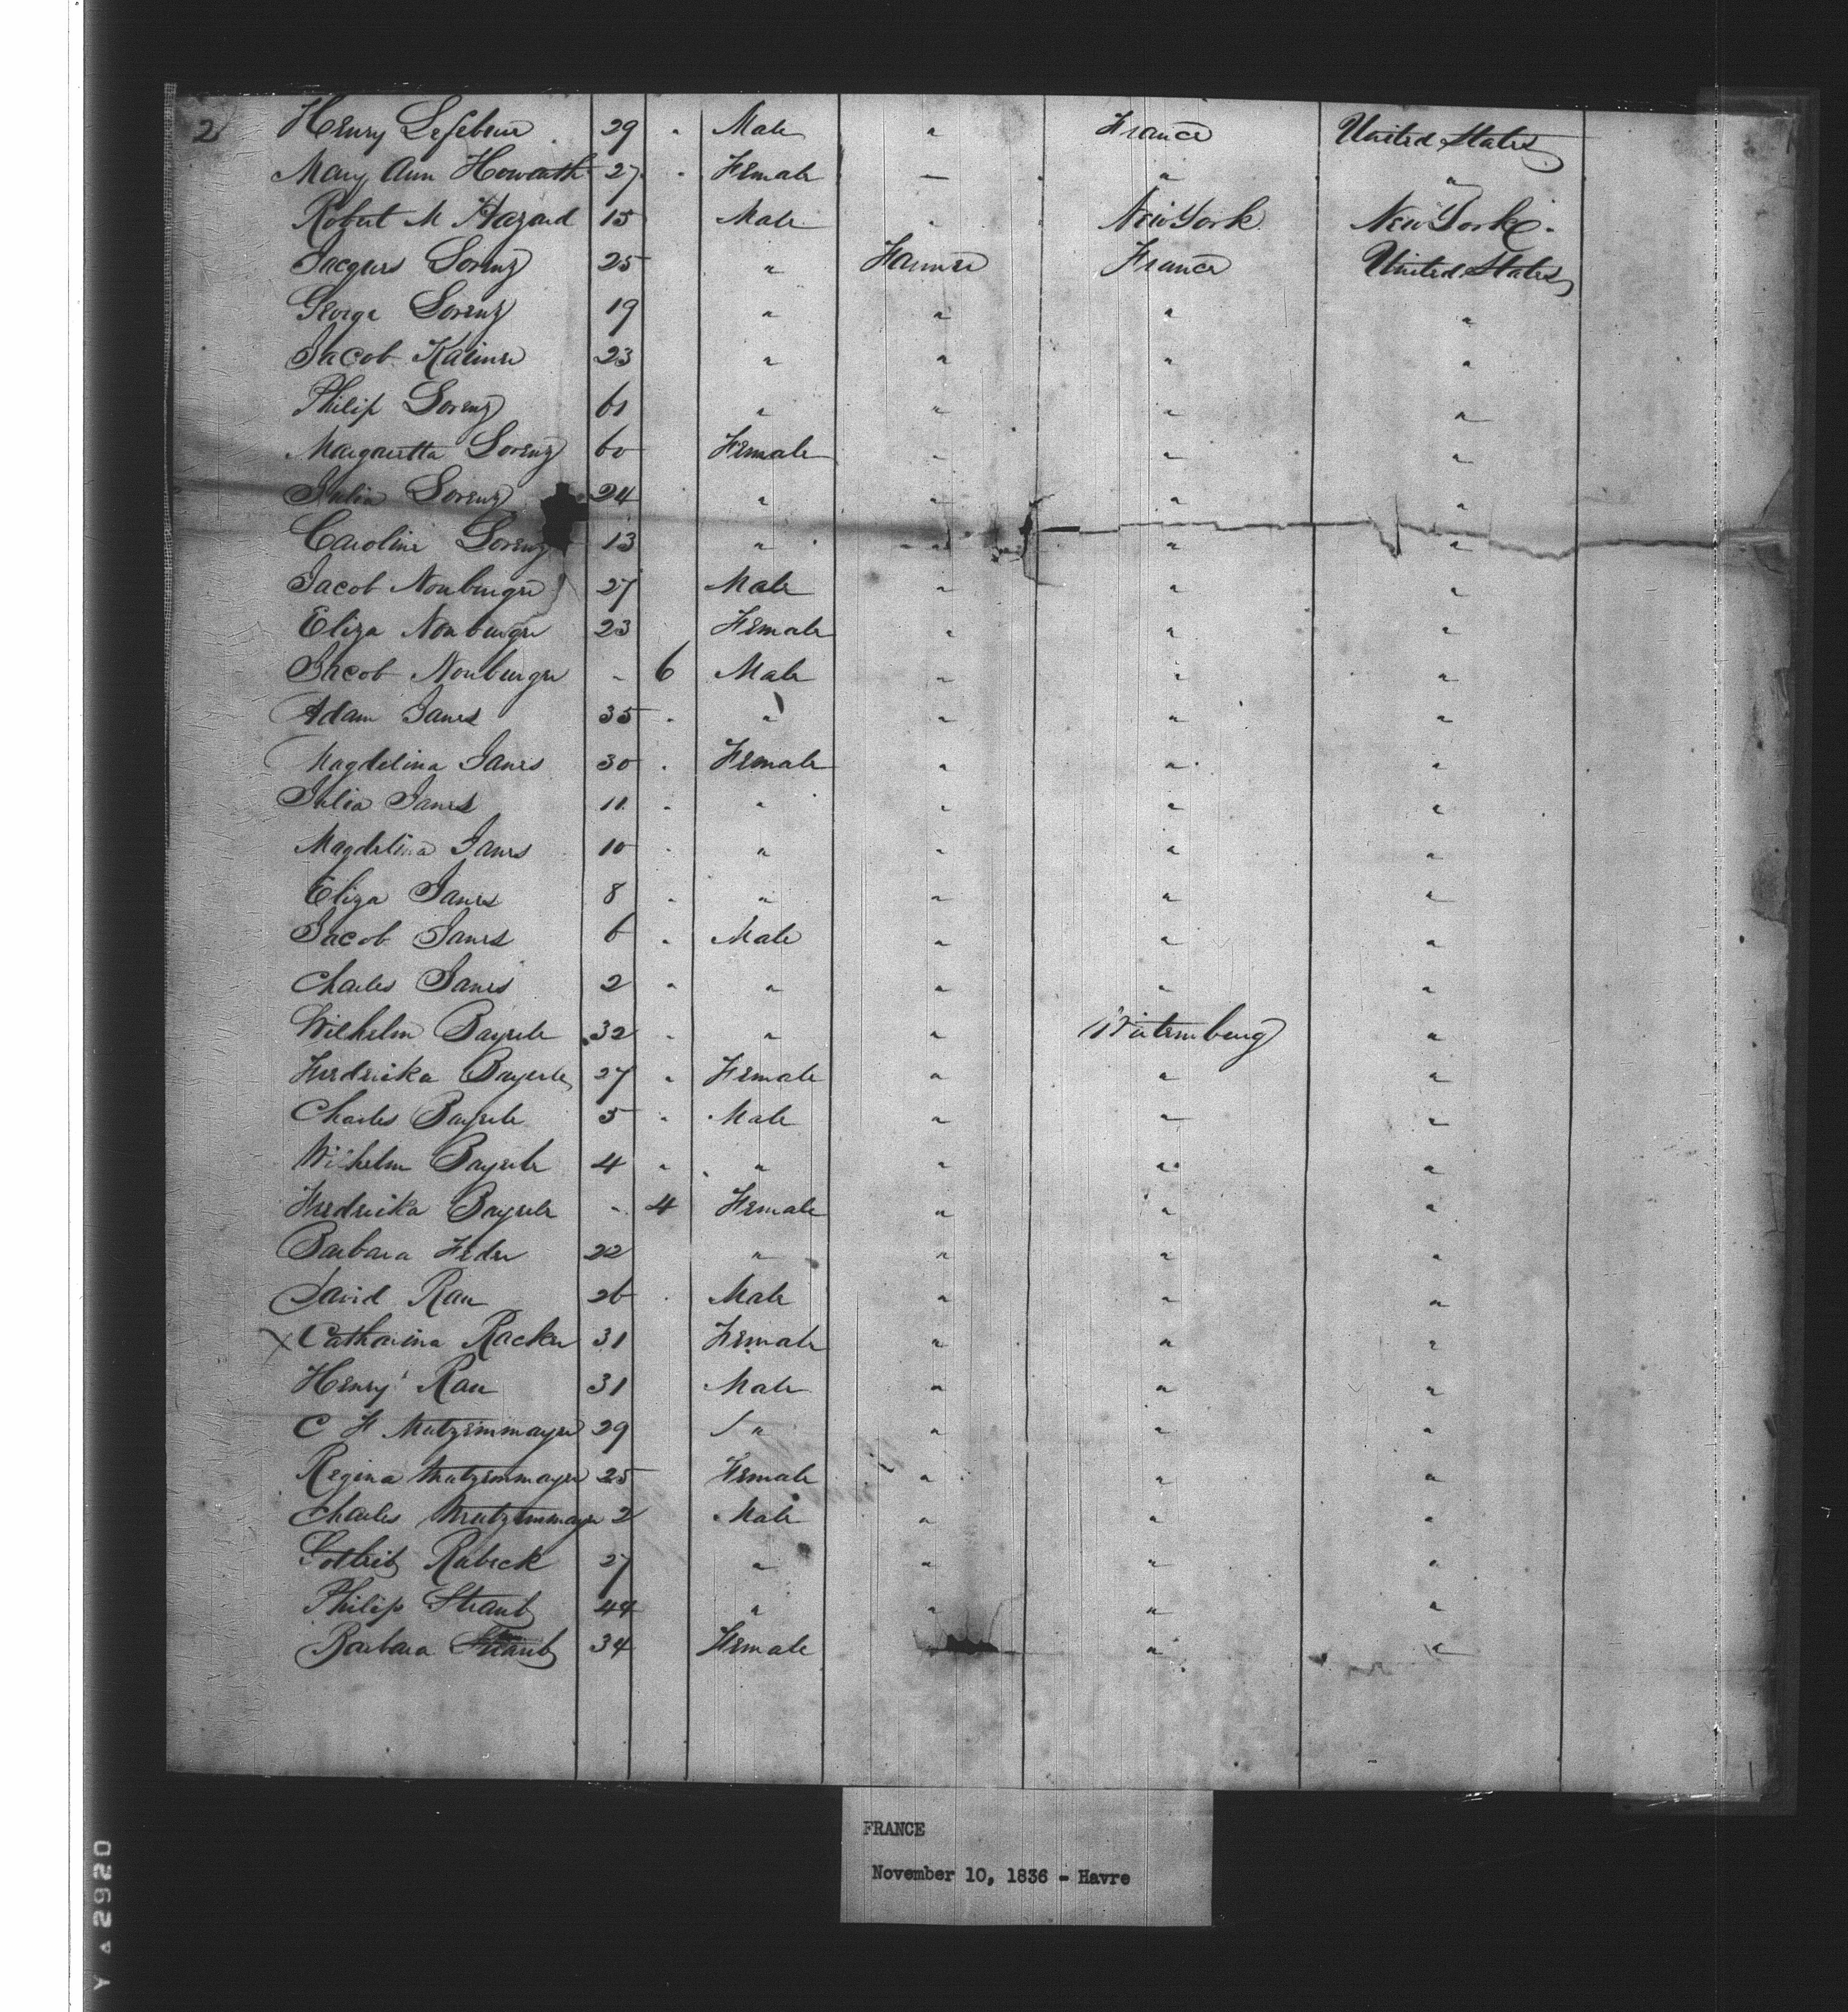 2 Henry Lefebvre 29 " Male " France United States
Mary Ann Howarth 27 " Female — " "
Robert M Hazard 15 Male " New York New York
Jacques Lorenz 25 " Farmer France United States
George Lorenz 19 " " " "
Jacob Karner 23 " " " "
Philip Lorenz 61 " " " "
Margaretta Lorenz 60 Female " " "
Julia Lorenz 24 " " " "
Caroline Lorenz 13 " " " "
Jacob Nonburger 27 Male " " "
Eliza Nonburger 23 Female " " "
Jacob Nonburger - 6 Male " " "
Adam Janes 35 " " " " "
Magdelina Janes 30 " Female " " "
Julia Janes 11 " " " " "
Magdelina Janes 10 " " " " "
Eliza Janes 8 " " " " "
Jacob Janes 6 " Male " " "
Charles Janes 2 " " " " "
Wilhelm Bayerle 32 " " " Wirtemberg "
Fredricka Bayerle 27 " Female " " "
Charles Bayerle 5 " Male " " "
Wilhelm Bayerle 4 " " " " "
Fredricka Bayerle - 4 Female " " "
Barbara Feder 22 " " " "
David Rau 26 " Male " " "
X Catharina Racker 31 Female " " "
Henry Rau 31 Male " " "
C F Mutzemmayer 29 " " " "
Regina Mutzemmayer 25 Female " " "
Charles Mutzemmayer 2 Male " " "
Gotleib Rabeck 27 " " " "
Philip Straub 44 " " " "
Barbara Straub 34 Female " "
FRANCE
November 10, 1836 - Havre
Y A 2920